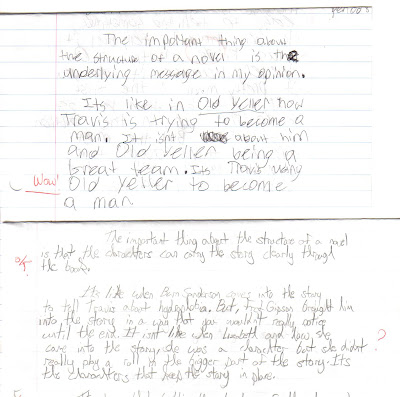 period 5
The important thing about
the structure of a novel is the
underlying message in my opinion.
Its like in Old Yeller how
Travis is trying to become a
man. It isnt about him
and Old Yeller being a
great team. Its Travis using
Wow!
Old Yeller to become
a man
The important thing about the structure of a novel
is that the charachters can carry the story clearly through
the book.
It's like when Sanderson comes into the story
to tell Travis about hydrophobia. But, Fred Gipson brought him
into the story in a way that you wouldn't really notice
until the end. It isn't like when and how she
came into the story, she was a charachter but she didn't
really play a roll in the bigger part of the story. It's
the charachters that keep the story in place.
?